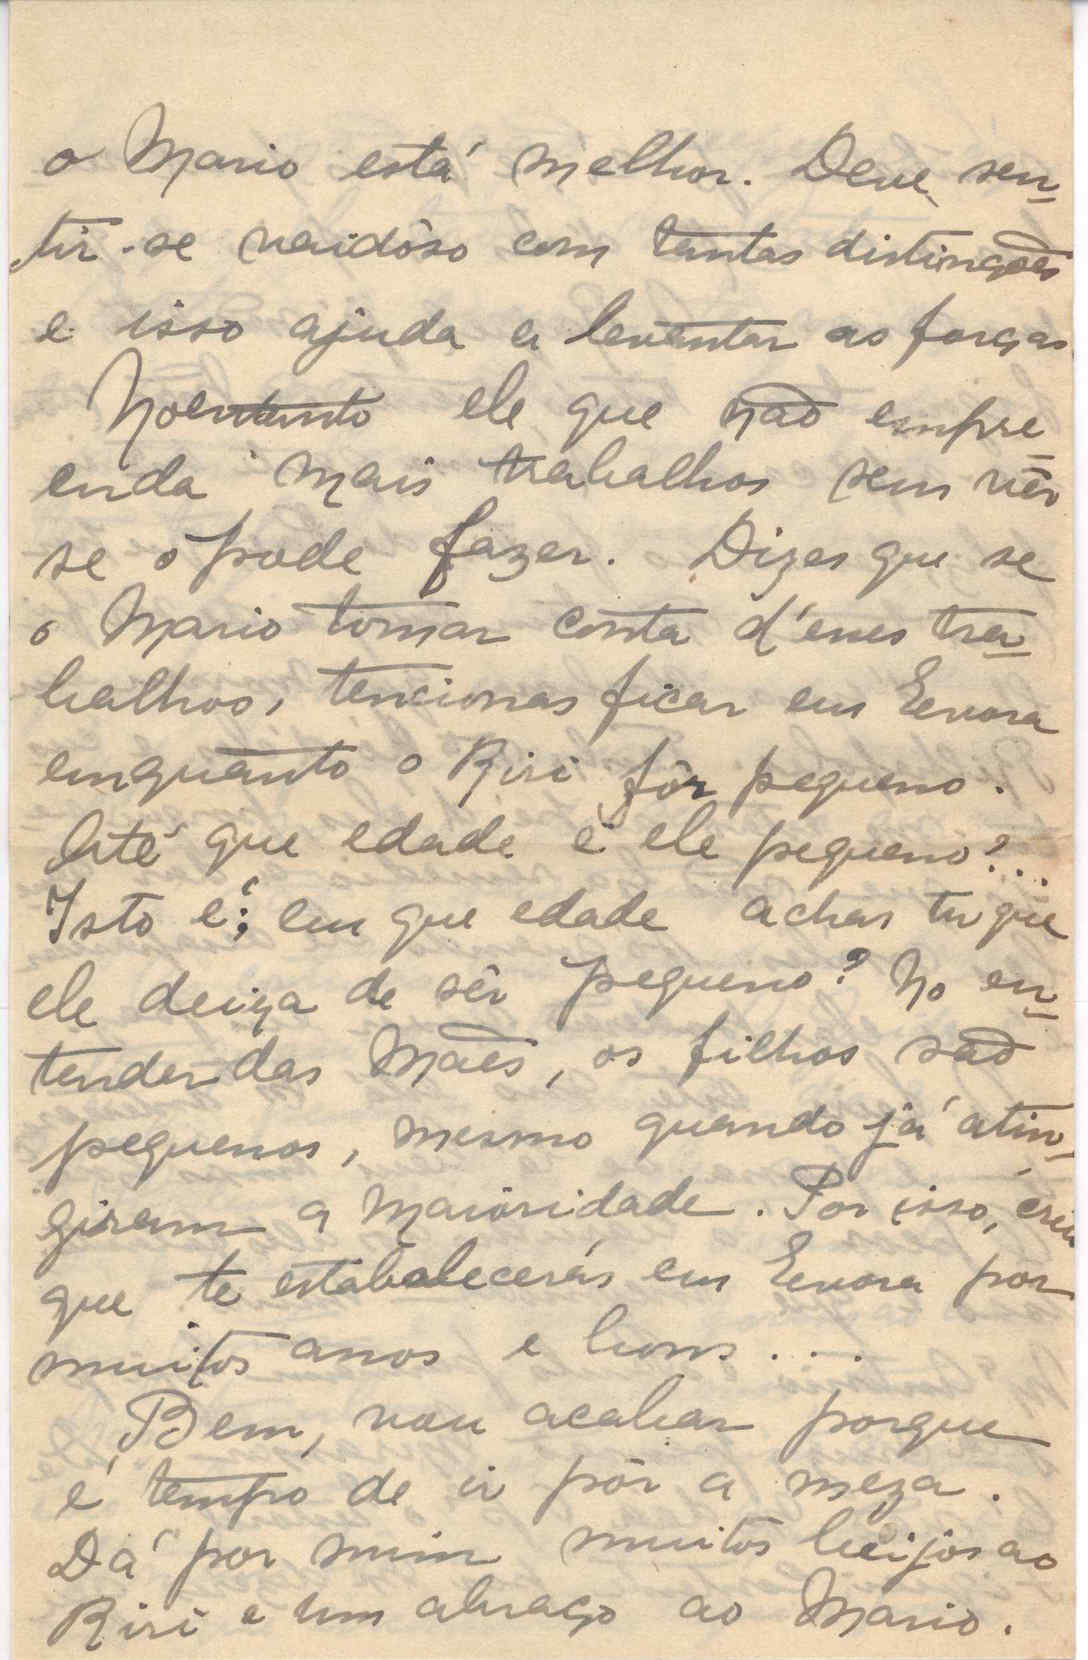 o Mario está melhor. Deve sen-
tir-se vaidôso com tantas distinções
e isso ajuda a levantar as forças.
Noentanto ele que não empre-
enda mais trabalhos sem vêr
se o pode fazer. Dizes que se
o Mario tomar conta d'esses tra-
balhos, tencionas ficar em Evora
emquanto o Riri fôr pequeno.
Até que edade é ele pequeno?...
Isto é; em que edade achas tu que
ele deixa de sêr pequeno? No en-
tender das Mães, os filhos são
pequenos, mesmo quando já atin-
giram a maioridade. Por isso, creio
que te estabalecerás em Evora por
muitos anos e bons...
Bem, vou acabar porque
é tempo de ir pôr a meza.
Dá por mim muitos beijos ao
Riri e um abraço ao Mario.